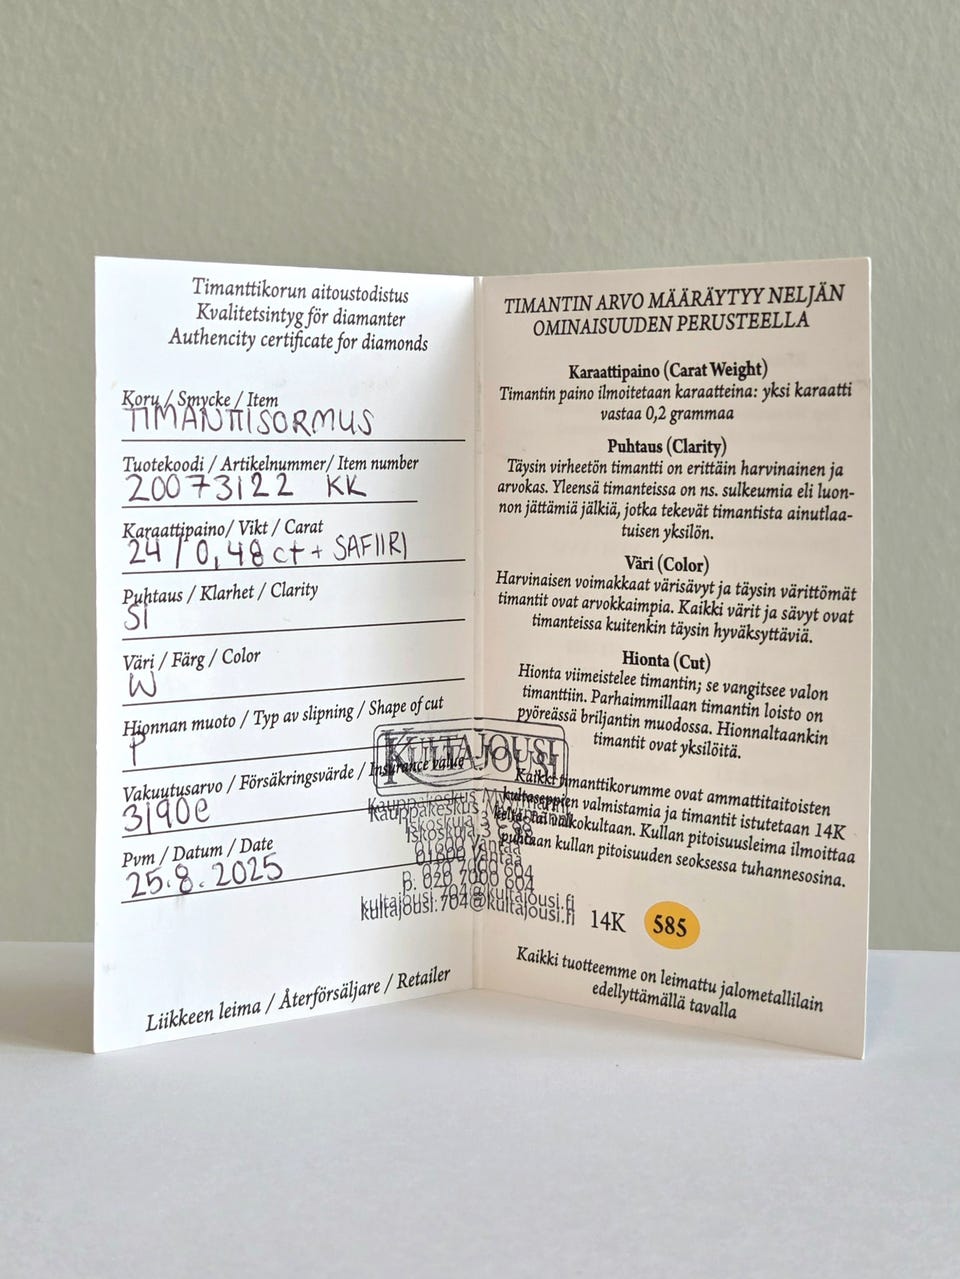 Timanttikorun aitoustodistus
Kvalitetsintyg för diamanter
Authencity certificate for diamonds
Koru / Smycke / Item
TIMANTTISORMUS
Tuotekoodi / Artikelnummer/ Item number
20073122 KK
Karaattipaino/ Vikt / Carat
24 / 0,48 ct + SAFIIRI
Puhtaus / Klarhet / Clarity
SI
Väri / Färg / Color
W
Hionnan muoto / Typ av slipning / Shape of cut
P
Vakuutusarvo / Försäkringsvärde / Insurance value
3190€
Pvm / Datum / Date
25.8.2025
KULTAJOUSI
Kauppakeskus Myyrmanni
Iskoskuja 3
01600 Vantaa
p. 020 7000 604
kultajousi.704@kultajousi.fi
Liikkeen leima / Återförsäljare / Retailer
TIMANTIN ARVO MÄÄRÄYTYY NELJÄN
OMINAISUUDEN PERUSTEELLA
Karaattipaino (Carat Weight)
Timantin paino ilmoitetaan karaatteina: yksi karaatti
vastaa 0,2 grammaa
Puhtaus (Clarity)
Täysin virheetön timantti on erittäin harvinainen ja
arvokas. Yleensä timanteissa on ns. sulkeumia eli luon-
non jättämiä jälkiä, jotka tekevät timantista ainutlaa-
tuisen yksilön.
Väri (Color)
Harvinaisen voimakkaat värisävyt ja täysin värittömät
timantit ovat arvokkaimpia. Kaikki värit ja sävyt ovat
timanteissa kuitenkin täysin hyväksyttäviä.
Hionta (Cut)
Hionta viimeistelee timantin; se vangitsee valon
timanttiin. Parhaimmillaan timantin loisto on
pyöreässä briljantin muodossa. Hionnaltaankin
timantit ovat yksilöitä.
Kaikki timanttikorumme ovat ammattitaitoisten
kultaseppien valmistamia ja timantit istutetaan 14K
kelta- tai valkokultaan. Kullan pitoisuusleima ilmoittaa
puhtaan kullan pitoisuuden seoksessa tuhannesosina.
14K 585
Kaikki tuotteemme on leimattu jalometallilain
edellyttämällä tavalla